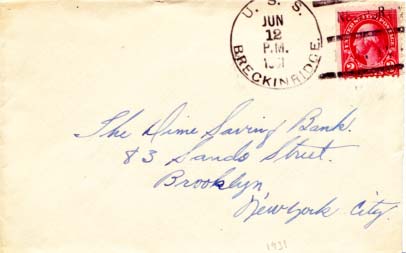 U. S. S.
JUN
12
P.M.
BRECKINRIDGE.
The Dime Saving Bank.
83 Sands Street.
Brooklyn
New York City.
1931